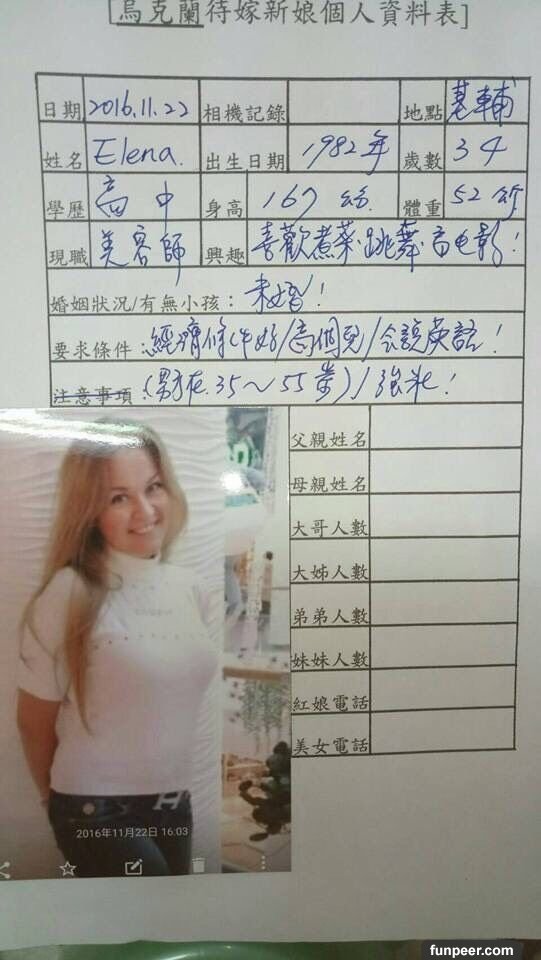 [烏克蘭待嫁新娘個人資料表]
日期 2016.11.22 相機記錄 地點 基輔
姓名 Elena. 出生日期 1982年 歲數 34
學歷 高中 身高 167公分. 體重 52公斤
現職 美容師 興趣 喜歡煮菜.跳舞.看电影!
婚姻狀況/有無小孩: 未婚!
要求條件: 經濟條件好/高個兒/会說英語!
注意事項: (男方在.35～55歲)/強壯!
父親姓名
母親姓名
大哥人數
大姊人數
弟弟人數
妹妹人數
紅娘電話
美女電話
2016年11月22日 16:03
funpeer.com